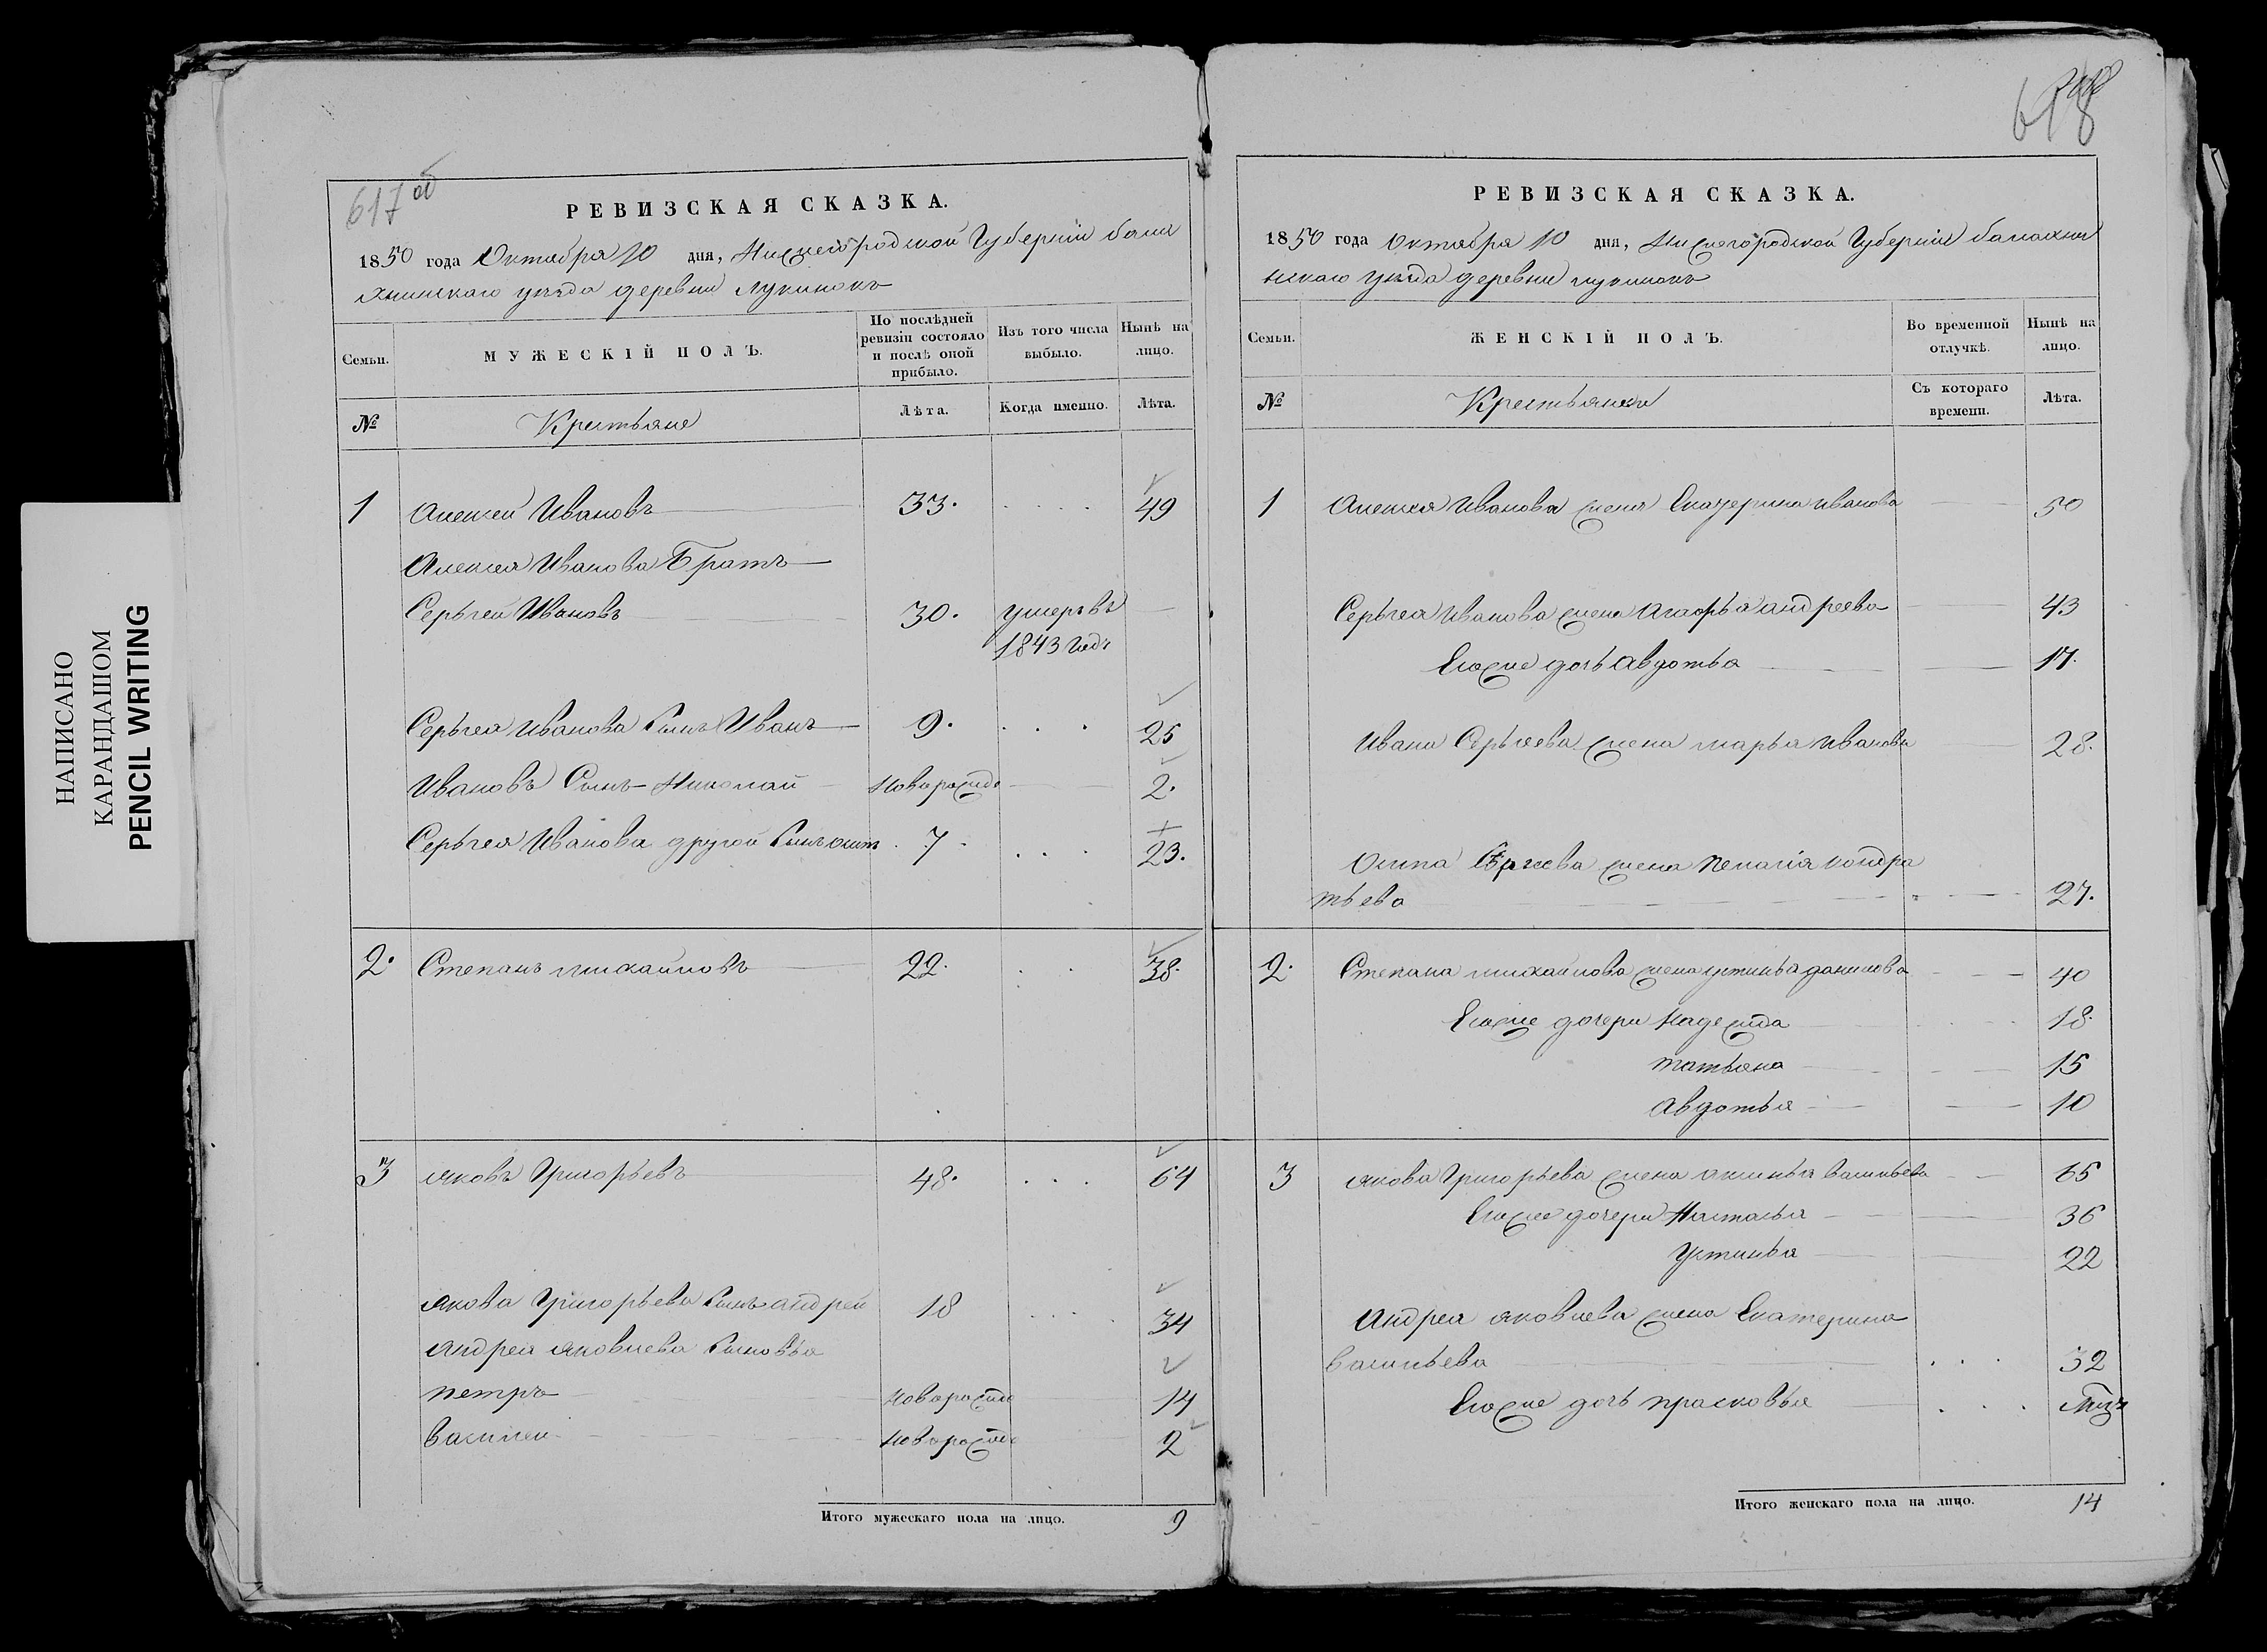 НАПИСАНО
КАРАНДАШОМ
PENCIL WRITING
617 об
РЕВИЗСКАЯ СКАЗКА.
1850 года Октября 10 дня, Нижегородской Губернии бала
хнинскаго уезда деревни Лукинокъ
Семьи.
МУЖЕСКІЙ ПОЛЪ.
По послѣдней ревизіи состояло и послѣ оной прибыло.
Изъ того числа выбыло.
Нынѣ на лицо.
№
Крестьяне
Лѣта.
Когда именно.
Лѣта.
1 Алексей Ивановъ 33. 49
Алексея Иванова Братъ
Серьгей Ивановъ 30. умеръ въ
1843 годе
Серьгея Иванова Сынъ Иванъ 9. 25
Ивановъ Сынъ Николай новорожде 2.
Серьгея Иванова другой Сынъ осип 7. 23.
2. Степанъ михайловъ 22. 38.
3 яковъ Григорьевъ 48. 64
якова Григорьева Сынъ андрей 18 34
андрея яковлева Сыновья
петръ новорожде 14
василеи новорожде 2
Итого мужескаго пола на лицо. 9
618
РЕВИЗСКАЯ СКАЗКА.
1850 года Октября 10 дня, Нижегородской Губернии балахни
нскаго уезда деревни лукинокъ
Семьи.
ЖЕНСКІЙ ПОЛЪ.
Во временной отлучкѣ.
Нынѣ на лицо.
№
Крестьянки
Съ котораго времени.
Лѣта.
1 Алексея Иванова жена Екатерина иванова 50
Серьгея Иванова жена агафья андреева 43
Егоже дочь авдотья 17.
Ивана Серьгеева жена марья иванова 28.
Осипа Сергеева жена пелагія кондра
тьева 27.
2. Степана михайлова жена устинья данилова 40
Егоже дочери надежда 18.
татьяна 15
авдотья 10
3 якова Григорьева жена аксинья васильева 65
Егоже дочери Насталья 36
Устинья 22
Андрея яковлева жена Екатерина
васильева 32
Егоже дочь прасковья
Итого женскаго пола на лицо. 14